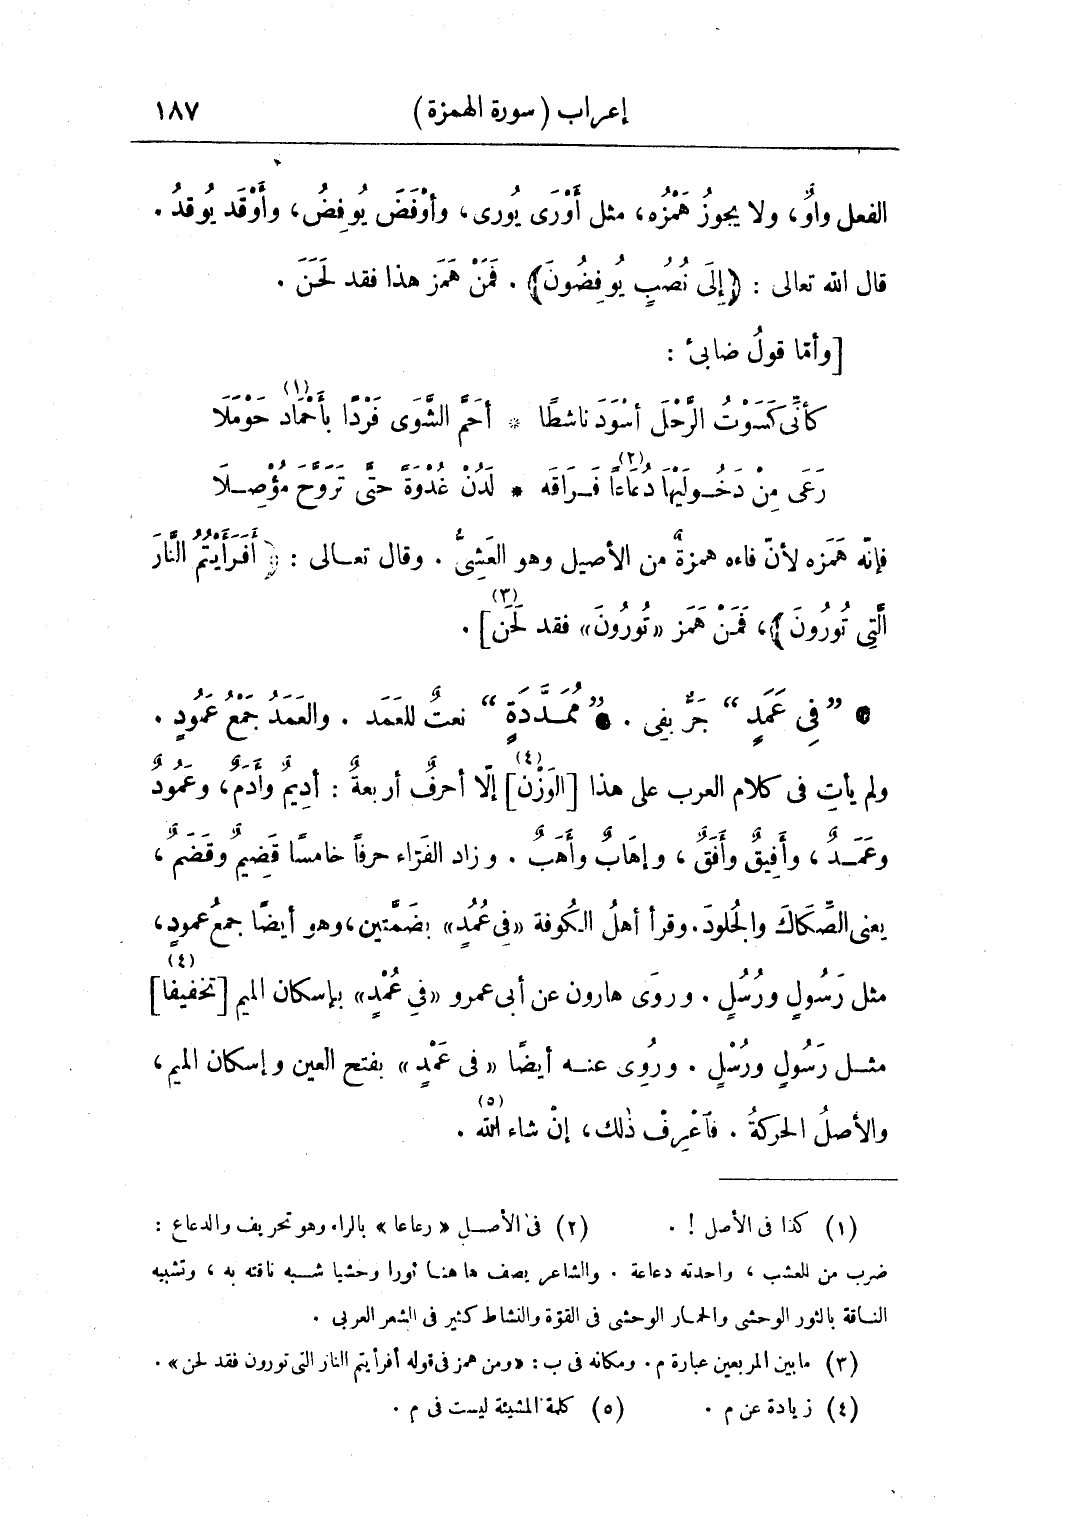 إعراب (سورة الهمزة) ١٨٧
الفعل واوٌ، ولا يجوزُ هَمْزُه، مثل أَوْرَى يُورى، وأَوْفَضَ يُوفِضُ، وأَوْقَد يُوقدُ .
قال الله تعالى : ﴿إِلَى نُصُبٍ يُوفِضُونَ﴾ . فَمَنْ هَمَز هذا فقد لَحَنَ .
[وأمّا قولُ ضابئ :
كأنِّى كَسَوْتُ الرَّحْلَ أسْوَدَ ناشطًا * أحَمَّ الشَّوَى فَرْدًا بأَحْمَاد حَوْمَلَا (١)
رَعَى مِنْ دَخُـولَيْهَا دُعَاعًا فَـرَاقَه * لَدُنْ غُدْوَةً حتَّى تَرَوَّحَ مُؤْصِـلَا (٢)
فإنّه هَمَزه لأنّ فاءه همزةٌ من الأصيل وهو العَشِىُّ . وقال تعـالى : ﴿أَفَرَأَيْتُمُ النَّارَ
الَّتِى تُورُونَ﴾، فَمَنْ هَمَز «تُورُونَ» فقد لَحَن (٣)] .
* ”فِى عَمَدٍ“ جَرٌّ بفِى . * ”مُمَـدَّدَةٍ“ نعتٌ للعَمَد . والعَمَدُ جَمْعُ عَمُودٍ .
ولم يأتِ فى كلام العرب على هذا [الوَزْن] (٤) إلّا أحرفٌ أربعةٌ : أدِيمٌ وأَدَمٌ، وعَمُودٌ
وعَمَـدٌ، وأَفِيقٌ وأَفَقٌ، وإهَابٌ وأَهَبٌ . وزاد الفَرّاء حرفاً خامسًا قَضِيمٌ وقَضَمٌ،
يعنى الصِّكَاكَ والجُلودَ. وقرأ أهلُ الكُوفة «فِى عُمُدٍ» بضَمَّتين، وهو أيضًا جمعُ عمودٍ،
مثل رَسُولٍ ورُسُلٍ . وروَى هارون عن أبى عمرو «فى عُمْدٍ» بإسكان الميم [تخفيفا] (٤)
مثـل رَسُولٍ ورُسْلٍ . ورُوِى عنـه أيضًا «فى عَمْدٍ» بفتح العين وإسكان الميم،
والأصلُ الحركةُ . فآعْرِفْ ذٰلك، إنْ شاء الله (٥) .
(١) كذا فى الأصل ! . (٢) فى الأصـل «رعاعا» بالراء وهو تحريف والدعاع :
ضرب من العشب، واحدته دعاعة . والشاعر يصف ها هنـا ثورا وحشيا شـبه ناقته به، وتشبيه
النـاقة بالثور الوحشى والحمـار الوحشى فى القوّة والنشاط كثير فى الشعر العربى .
(٣) ما بين المربعين عبارة م. ومكانه فى ب : «ومن همز فى قوله أفرأيتم النار التى تورون فقد لحن» .
(٤) زيادة عن م . (٥) كلمة المشيئة ليست فى م .